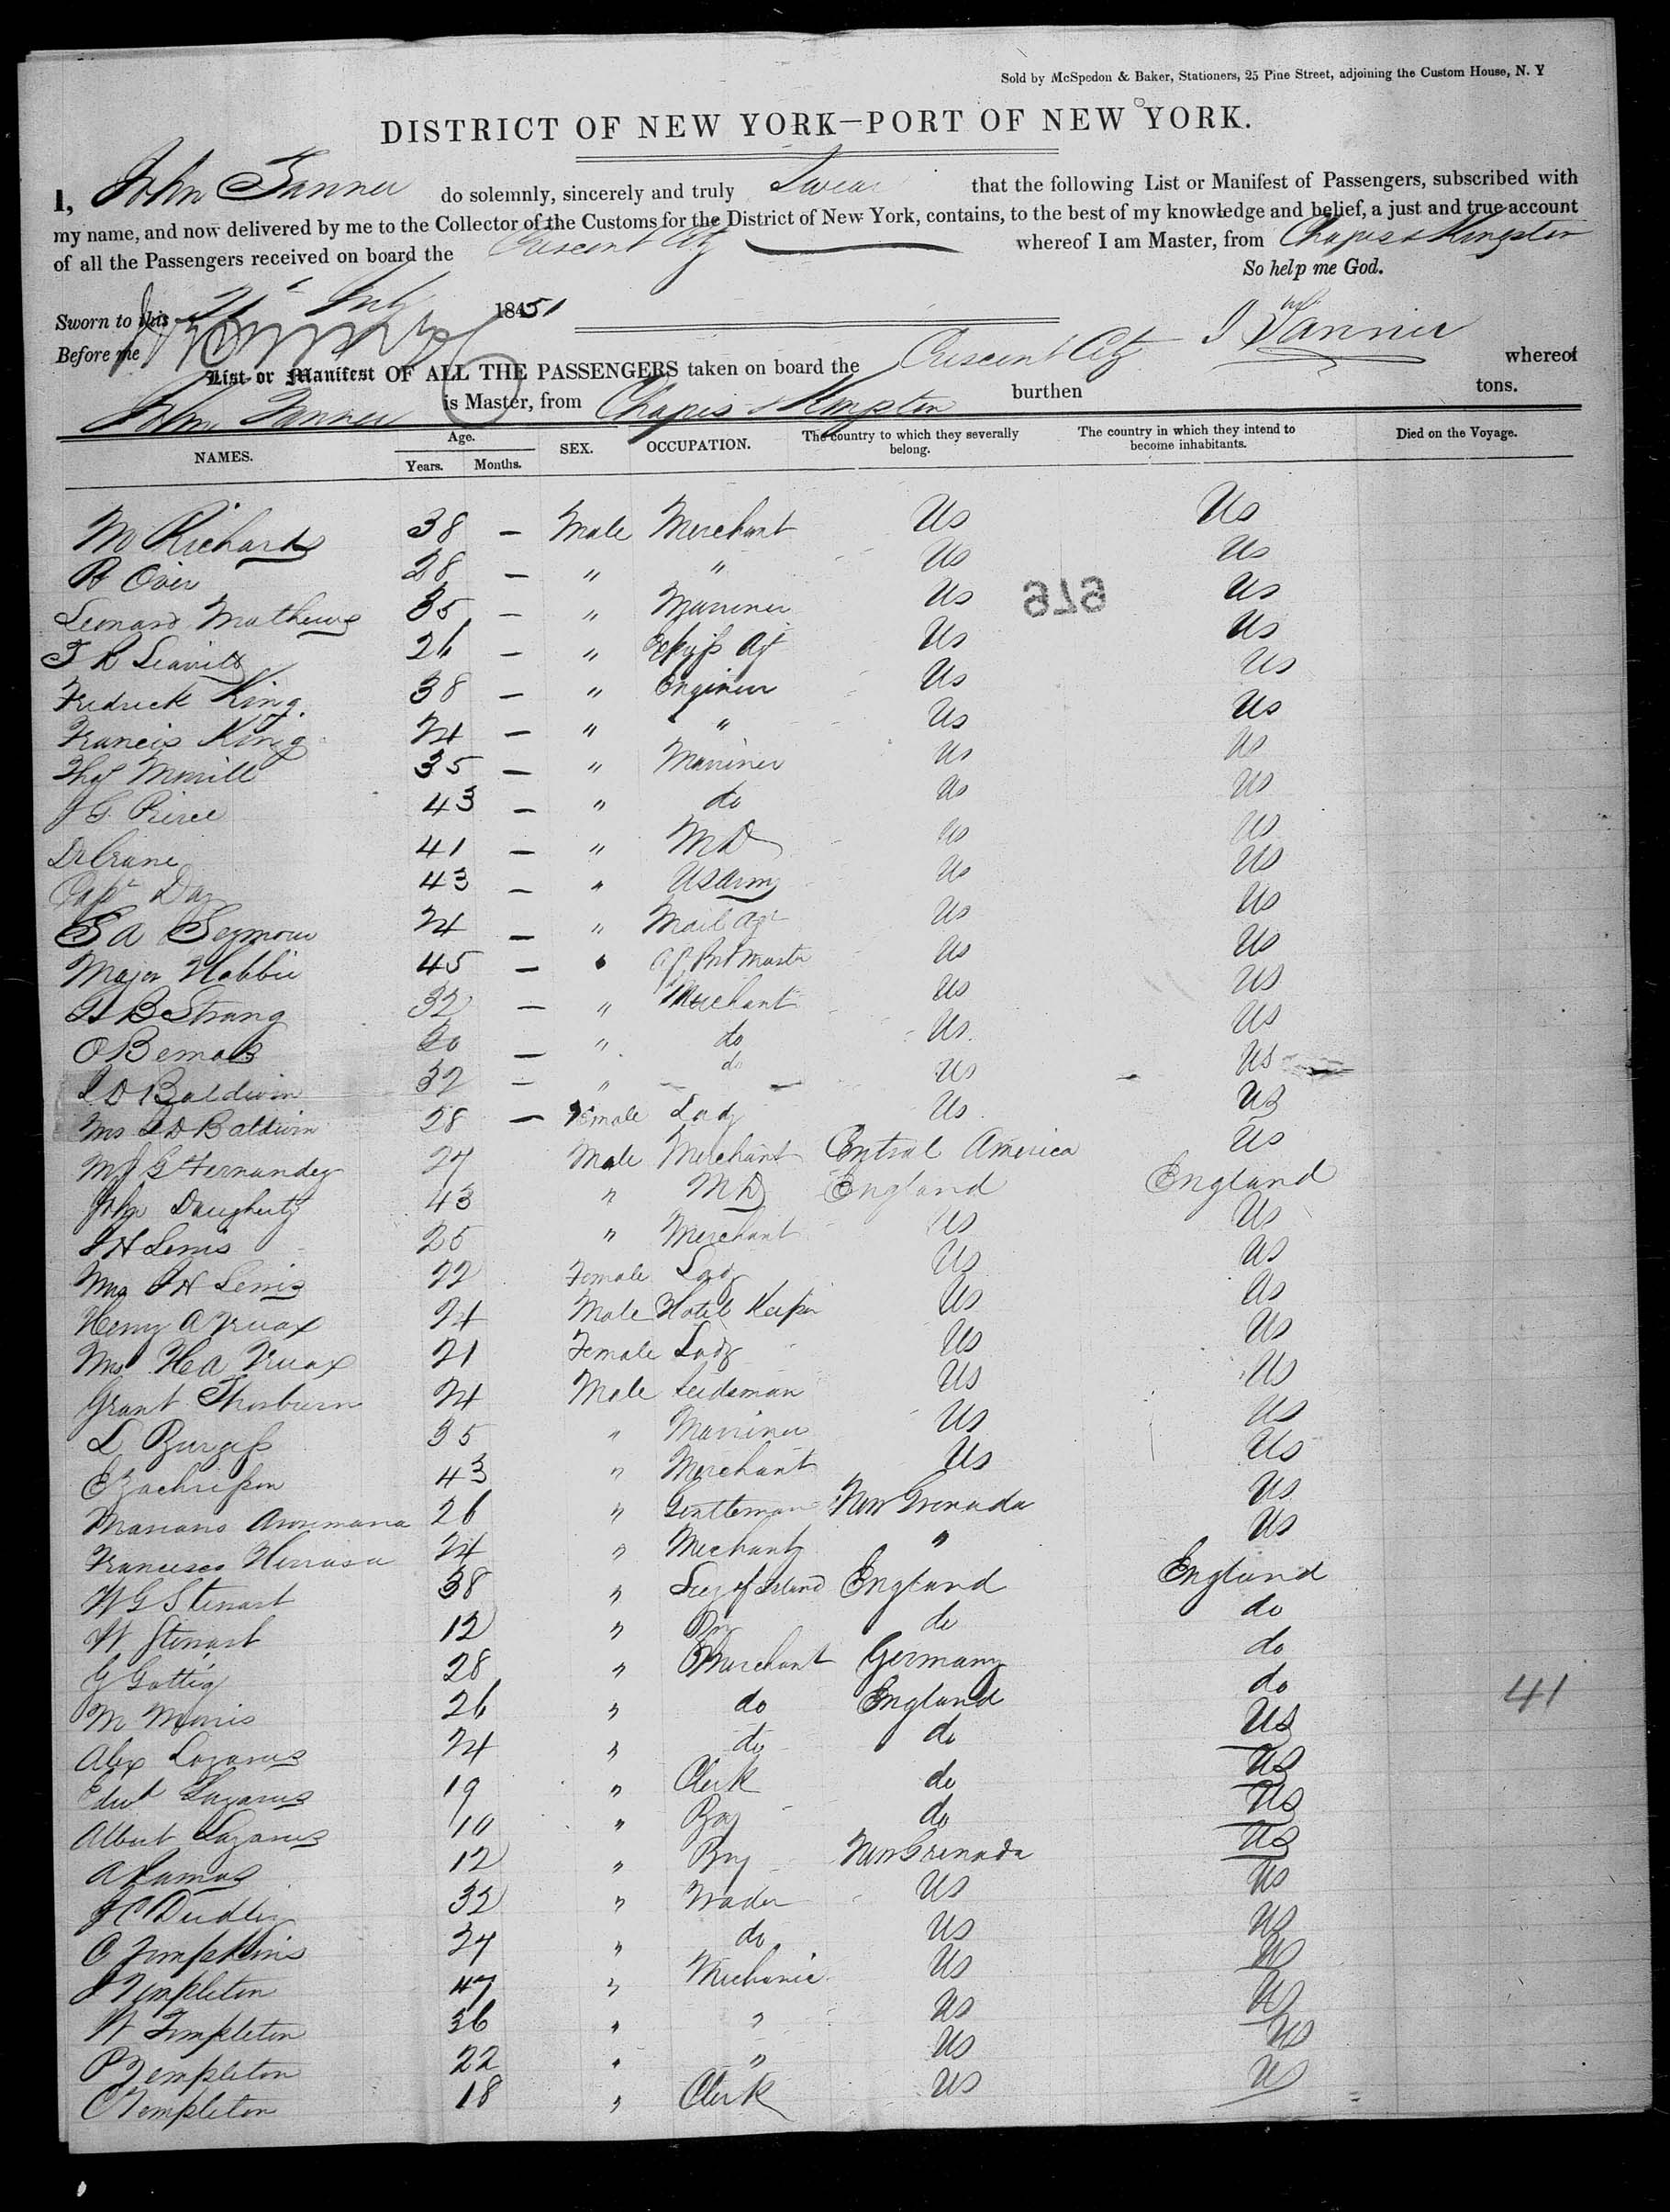 Sold by McSpedon & Baker, Stationers, 25 Pine Street, adjoining the Custom House, N. Y
DISTRICT OF NEW YORK—PORT OF NEW YORK.
I, John Tanner do solemnly, sincerely and truly Swear that the following List or Manifest of Passengers, subscribed with
my name, and now delivered by me to the Collector of the Customs for the District of New York, contains, to the best of my knowledge and belief, a just and true account
of all the Passengers received on board the Crescent City whereof I am Master, from Chagres & Kingston
So help me God.
Sworn to this 21 July 1851
Before me
J Tanner
List or Manifest OF ALL THE PASSENGERS taken on board the Crescent City whereof
John Tanner is Master, from Chagres & Kingston burthen tons.
NAMES. Age. Years. Months. SEX. OCCUPATION. The country to which they severally belong. The country in which they intend to become inhabitants. Died on the Voyage.
M Richards 38 — Male Merchant Us Us
R Over 28 — " " Us Us
676
Leonard Mathews 35 — " Marriner Us Us
T R Leavitt 26 — " Us Us
Fredrick King 38 — " Engineer Us Us
Francis King 24 — " " Us Us
Thos Merrill 35 — " Marriner Us Us
J G Pierce 43 — " do Us Us
Dr Crane 41 — " MD Us Us
Capt Day 43 — " US Army Us Us
S A Seymour 24 — " Mail Agt Us Us
Major Hobbie 45 — " Post Master Us Us
B Strang 32 — " Merchant Us Us
O 20 — " do Us Us
S D Baldwin 32 — " do Us Us
Mrs S D Baldwin 28 — Female Lady Us Us
G Fernandez 27 Male Merchant Central America Us
John Daugherty 43 " MD England England
J H Lewis 25 " Merchant Us Us
Mrs J H Lewis 22 Female Lady Us Us
Henry A Truax 24 Male Hotel Keeper Us Us
Mrs H A Truax 21 Female Lady Us Us
Grant Thorburn 24 Male Seedsman Us Us
L Burgess 35 " Marriner Us Us
E Zachrisson 43 " Merchant Us Us
Mariano 26 " Gentleman New Grenada Us
Francisco 24 " Merchant " Us
W G Stewart 38 " England England
W Stewart 12 " Boy do do
G Gottig 28 " Merchant Germany do
M Morris 26 " do England do
41
Alex Lazarus 24 " do do Us
Edwd Lazarus 19 " Clerk do Us
Albert Lazarus 10 " Boy do Us
A Ramos 12 " Boy New Grenada Us
J C Dudley 32 " Trader Us Us
C Tompkins 27 " do Us Us
J Templeton 47 " Mechanic Us Us
W Templeton 36 " " Us Us
P Templeton 22 " " Us Us
C Templeton 18 " Clerk Us Us